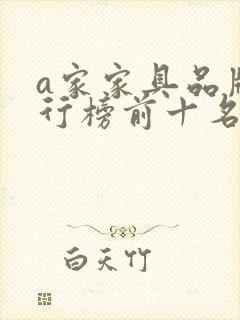 a家家具品牌
行榜前十名
白天竹